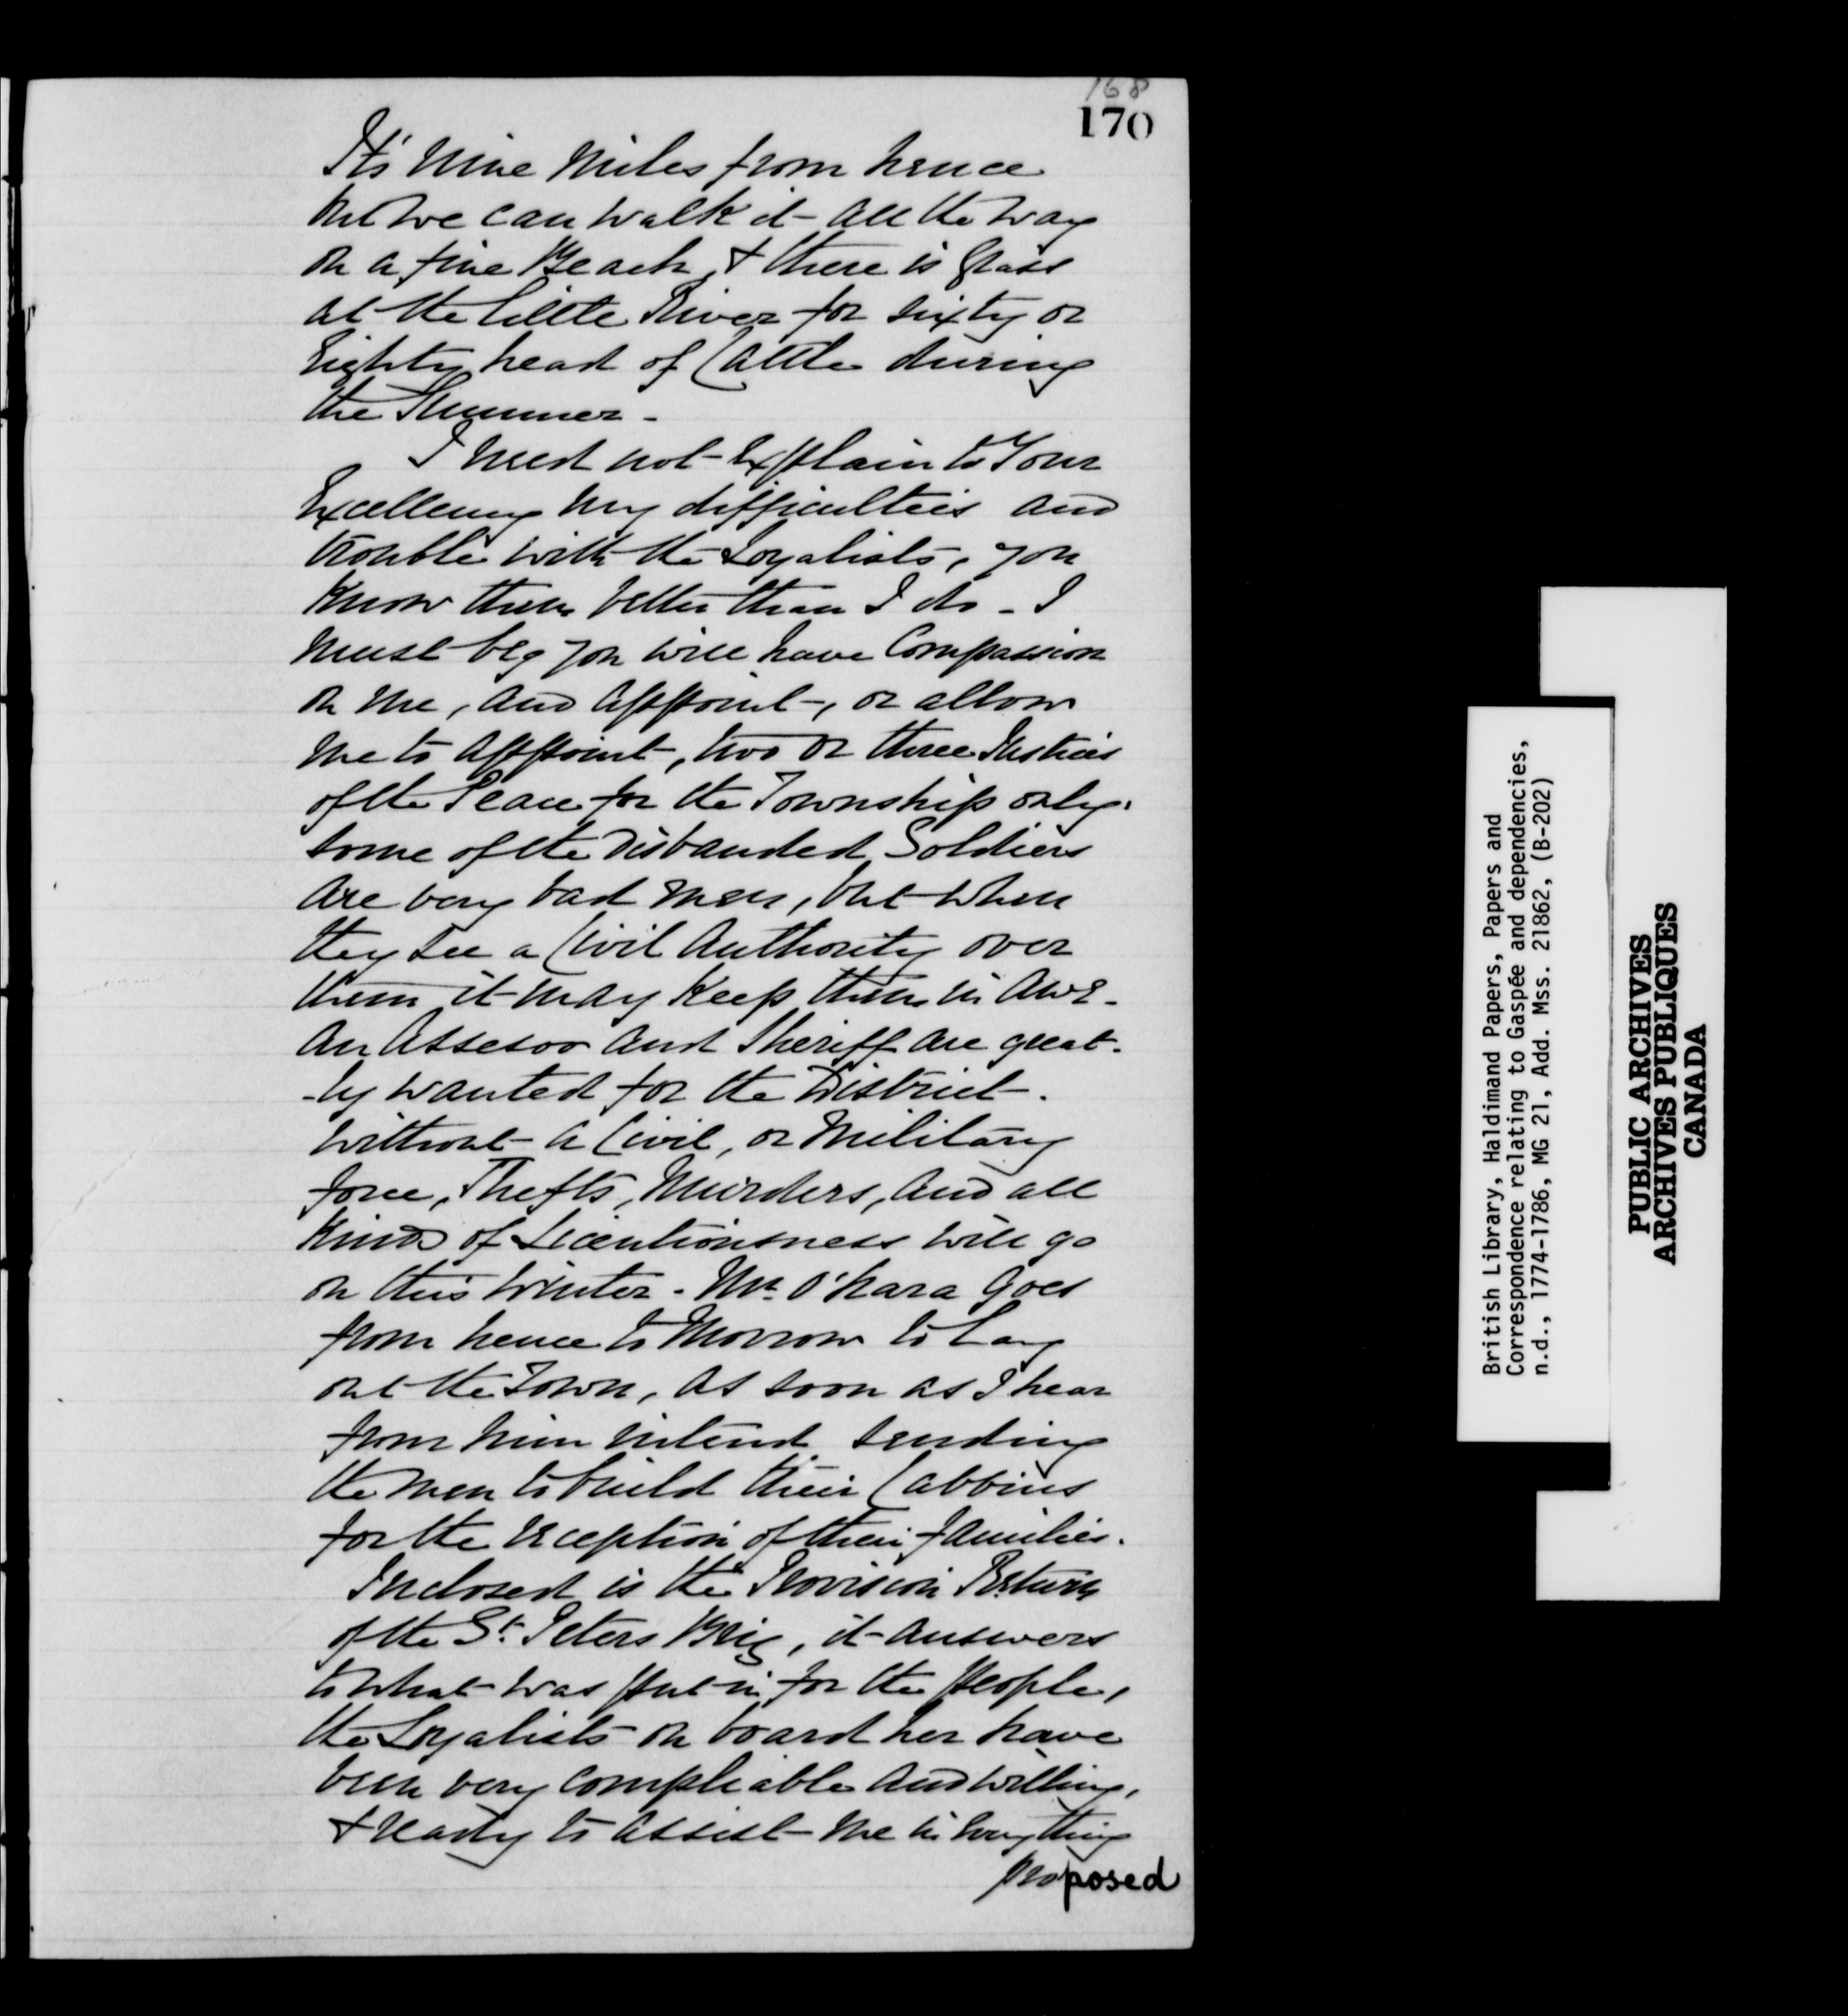 168
170
It's Nine Miles from hence
but we can walk it all the way
on a fine Beach, & there is Grass
at the little River for sixty or
Eighty head of Cattle during
the Summer -
I need not Explain to Your
Excellency my difficulties and
trouble with the Loyalists, you
Know them better than I do - I
must beg you will have Compassion
on me, and appoint, or allow
me to appoint, two or three Justices
of the Peace for the Township only.
some of the Disbanded Soldiers
are very bad men, but when
they see a Civil Authority over
them it may Keep them in awe.
An Assesor and Sheriff are great-
-ly wanted for the District.
without a Civil, or Military
force, Thefts, Murders, and all
Kinds of Licentiousness will go
on this Winter. Mr. O'hara Goes
from hence to Morrow to Lay
out the Town, as soon as I hear
from him intend sending
the men to build their Cabbins
for the reception of their families.
Inclosed is the Provision Return
of the St. Peters Brig, it answers
to what was put in for the people,
the Loyalists on board her have
been very compliable and willing,
& ready to assist me in every thing
proposed
British Library, Haldimand Papers, Papers and
Correspondence relating to Gaspée and dependencies,
n.d., 1774-1786, MG 21, Add. Mss. 21862, (B-202)
PUBLIC ARCHIVES
ARCHIVES PUBLIQUES
CANADA